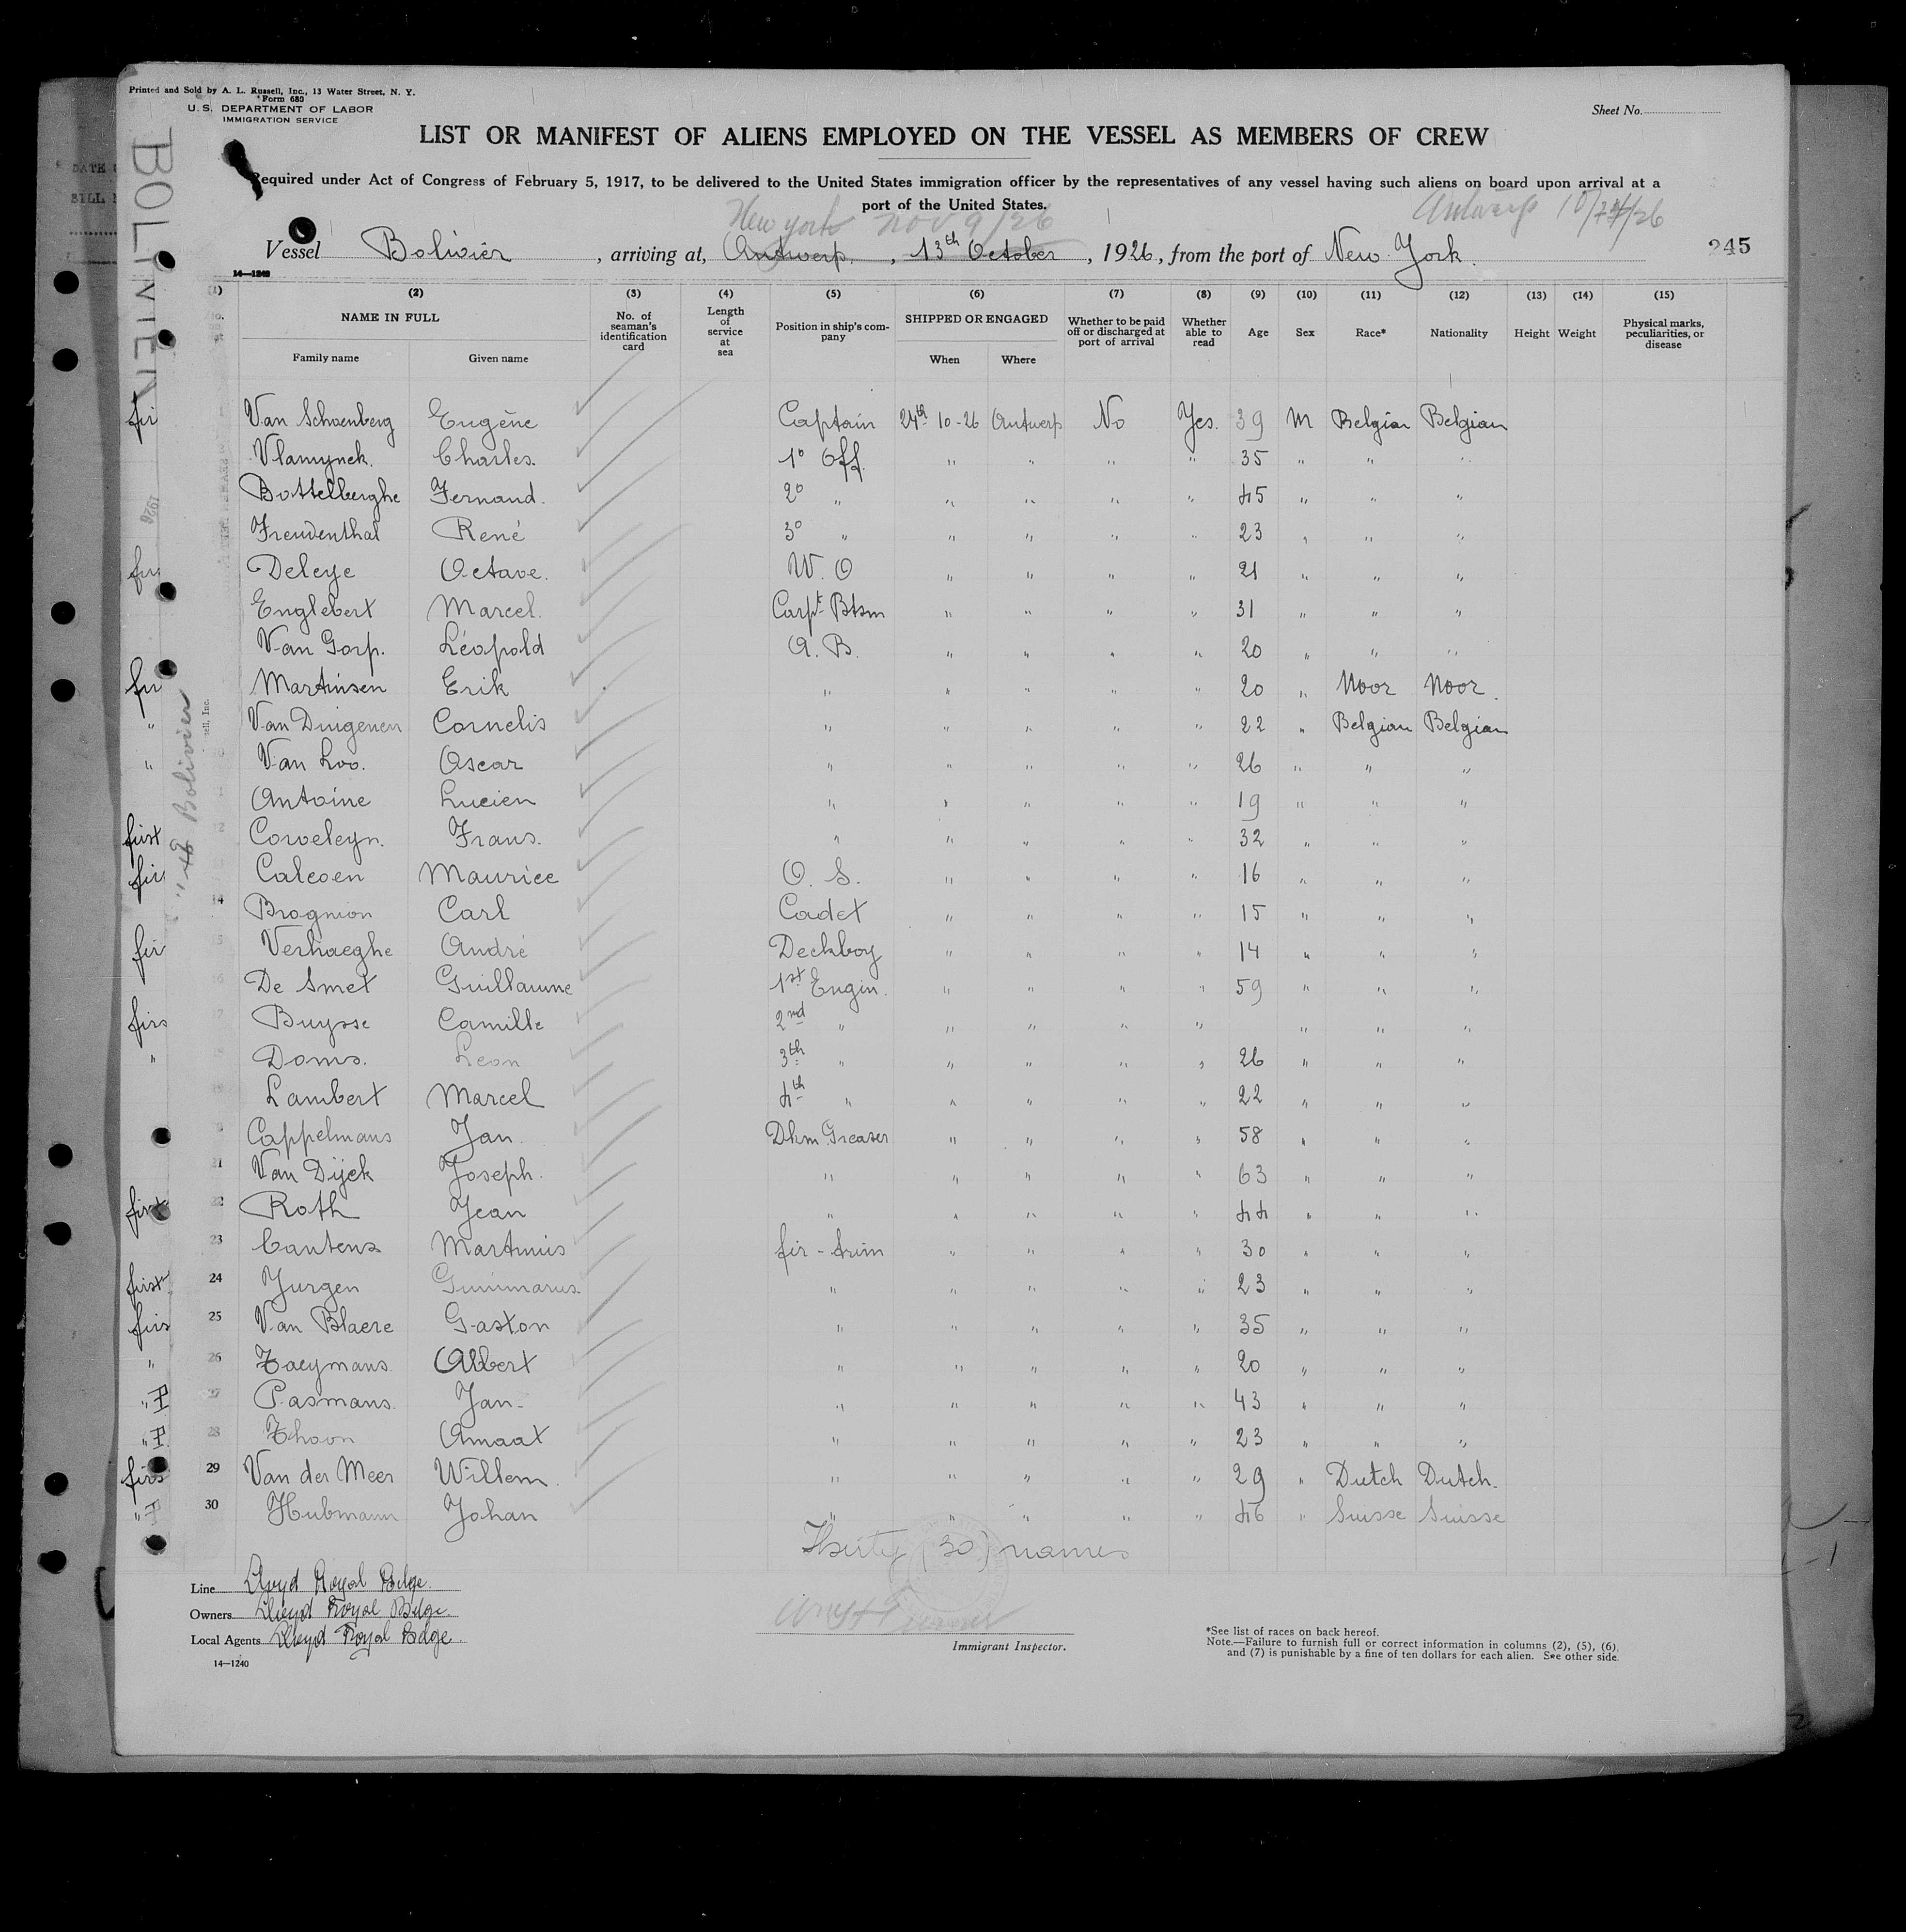 Printed and Sold by A. L. Russell, Inc., 13 Water Street, N. Y.
Form 680
U. S. DEPARTMENT OF LABOR
IMMIGRATION SERVICE
Sheet No.
LIST OR MANIFEST OF ALIENS EMPLOYED ON THE VESSEL AS MEMBERS OF CREW
Required under Act of Congress of February 5, 1917, to be delivered to the United States immigration officer by the representatives of any vessel having such aliens on board upon arrival at a
port of the United States.
New York Nov 9/26
Antwerp
Vessel Bolivier, arriving at, Antwerp, 13th October, 1926, from the port of New York.
245
14—1240
BOLIVIER
Bolivier
(1) (2) (3) (4) (5) (6) (7) (8) (9) (10) (11) (12) (13) (14) (15)
NAME IN FULL
Family name Given name
No. of seaman's identification card
Length of service at sea
Position in ship's company
SHIPPED OR ENGAGED
When Where
Whether to be paid off or discharged at port of arrival
Whether able to read
Age Sex Race* Nationality Height Weight
Physical marks, peculiarities, or disease
fir Van Schoenberg Eugène Captain 24th 10-26 Antwerp No Yes. 39 M Belgian Belgian
Vlamynck. Charles. 1° Off. " " " " 35 " " "
Bottelberghe Fernand. 2° " " " " " 45 " " "
Freudenthal René 3° " " " " " 23 " " "
Deleye Octave. W. O " " " " 21 " " "
Englebert Marcel. Carpt Btsm " " " " 31 " " "
Van Gorp. Léopold A. B. " " " " 20 " " "
Martinsen Erik " " " " " 20 " Noor Noor.
" Van Duigenen Cornelis " " " " " 22 " Belgian Belgian
" Van Loo. Oscar " " " " " 26 " " "
Antoine Lucien " " " " " 19 " " "
first Corveleyn. Frans. " " " " " 32 " " "
fir Calcoen Maurice O. S. " " " " 16 " " "
14 Brognion Carl Cadet " " " " 15 " " "
fir Verhaeghe André Deckboy " " " " 14 " " "
De Smet Guillaume 1st Engin. " " " " 59 " " "
firs Buysse Camille 2nd " " " " " " " "
" Doms. Leon 3th " " " " " 26 " " "
Lambert Marcel 4th " " " " " 22 " " "
Cappelmans Jan. Dkm Greaser " " " " 58 " " "
21 Van Dijck Joseph. " " " " " 63 " " "
first 22 Roth Jean " " " " " 44 " " "
23 Cantens Martinus fir - trim " " " " 30 " " "
first 24 Jurgen Gummarus. " " " " " 23 " " "
firs 25 Van Blaere Gaston " " " " " 35 " " "
" 26 Taeymans. Albert " " " " " 20 " " "
" 27 Pasmans. Jan. " " " " " 43 " " "
" 28 Thoon Amaat " " " " " 23 " " "
firs 29 Van der Meer Willem. " " " " " 29 " Dutch Dutch.
" 30 Hubmann Johan " " " " " 46 " Suisse Suisse
Thirty (30) names
Line Lloyd Royal Belge.
Owners Lloyd Royal Belge
Local Agents Lloyd Royal Belge.
14—1240
Immigrant Inspector.
*See list of races on back hereof.
Note.—Failure to furnish full or correct information in columns (2), (5), (6),
and (7) is punishable by a fine of ten dollars for each alien. See other side.